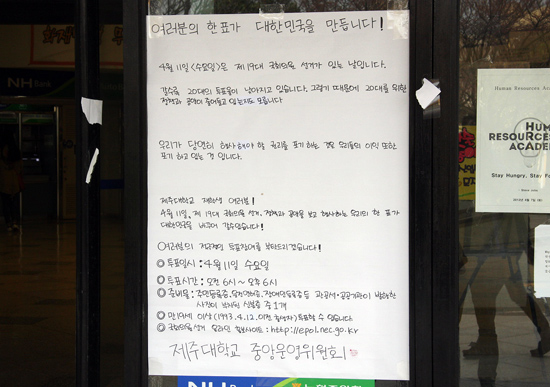 여러분의 한표가 대한민국을 만듭니다!
4월 11일 <수요일>은 제19대 국회의원 선거가 있는 날입니다.
갈수록 20대의 투표율이 낮아지고 있습니다. 그렇기 때문에 20대를 위한
정책과 공약이 줄어들고 있는지도 모릅니다
우리가 당연히 행사해야 할 권리를 포기하는 것은 우리들의 이익 또한
포기하고 있는 것 입니다.
제주대학교 재학생 여러분!
4월 11일, 제19대 국회의원 선거, 정책과 공약을 보고 행사하는 우리의 한 표가
대한민국을 바꾸어 갈수있습니다!
여러분의 적극적인 투표참여를 부탁드리겠습니다!
◎투표일시 : 4월 11일 수요일
◎투표시간 : 오전 6시 ~ 오후 6시
◎준비물 : 주민등록증, 운전면허증, 장애인등록증 등 관공서·공공기관이 발행한
사진이 부착된 신분증 중 1개
◎만19세 이상 (1993.4.12.이전 출생자) 투표할 수 있습니다.
◎국회의원선거 온라인 홈페이지 : http://epol.nec.go.kr
제주대학교 중앙운영위원회
NH Bank
NH Bank
Human Resources
HUMAN
RESOURCES
ACADEM
Stay Hungry, Stay Fo